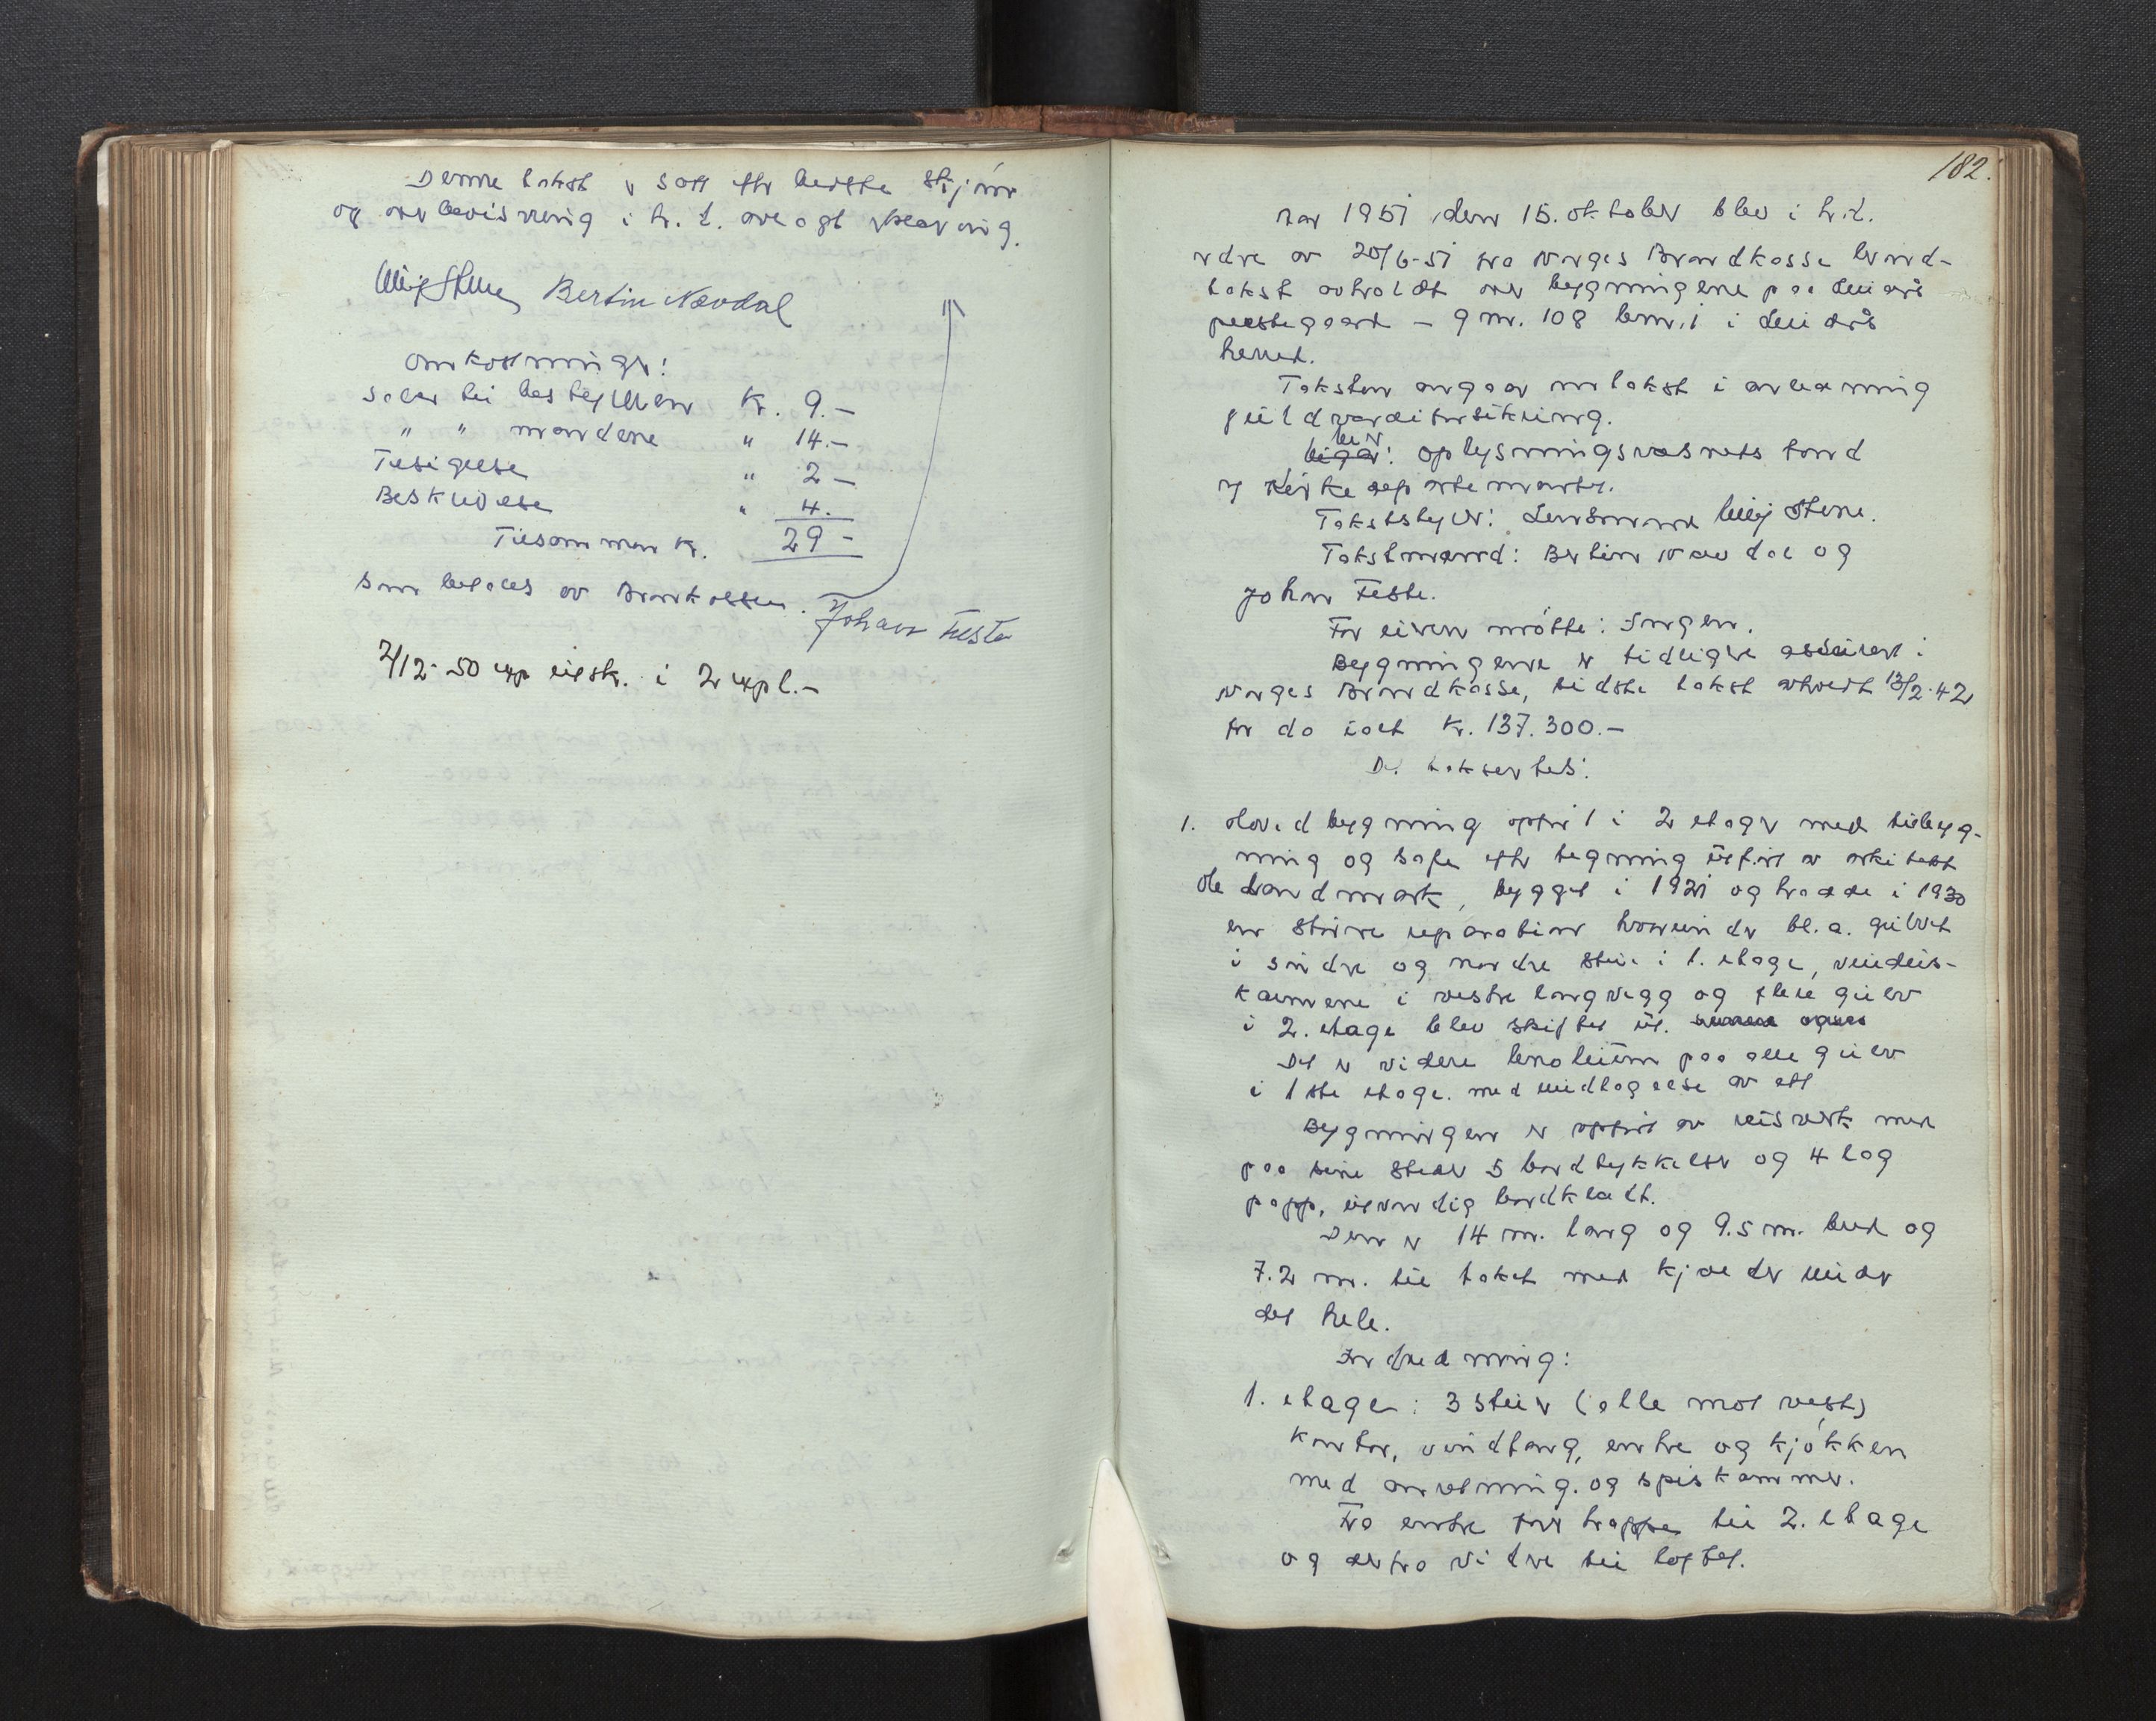 Denne takst er satt efter beste skjønn
og overbevisning i h. t. avlagt forklaring.
Bertin Nævdal
Omkostninger:
Salær til bestyreren Kr. 9.-
" " mændene " 14.-
Tilsigelse " 2 -
Beskrivelse " 4.
Tilsammen kr. 29 -
som betales av Brankassen. Johan Feste
2/12-50 exp utskr. i 2 expl.-
182.
Aar 1951 den 15. oktober blev i h.t.
ordre av 20/6-51 fra Norges Brandkasse brand-
takst avholdt over bygningene paa Leirdal
prestegaard - gnr. 108 bnr. 1 i
herred.
Taksten angaar omtakst i anledning
fuldverdiforsikring.
eier
: Oplysningsvæsenets fond
v/ Kirkedepartementet.
Takstbestyrer: Lensmann Stene.
Takstmænd: Bertin Nævdal og
Johan Feste.
For eieren møtte: Ingen.
Bygningene er tidligere assurert i
Norges Brandkasse, sidste takst avholdt 13/2-42
for da ialt kr. 137.300.-
Der takseredes:
1. Hovedbygning opført i 2 etager med tilbyg-
ning og safe efter tegning utført av arkitekt
Ole Landmark, bygget i 1921 og hadde i 1930
en større reparation hvorunder bl.a. gulvet
i søndre og nordre stue i 1. etage, vindus-
karmene i vestre langvegg og flere gulv
i 2. etage blev skiftet ut.
Det er videre linoleum paa alle gulv
i 1ste etage. med undtagelse av ett
Bygningen er opført av reisverk med
paa sine steder 5 bordtykkelser og 4 lag
papp, utvendig bordkledt.
Den er 14 m. lang og 9.5 m. bred og
7.2 m. til taket med kjelder under
det hele.
Indredning:
1. etage: 3 stuer (alle mot vest)
kontor, vindfang, entre og kjøkken
med anretning. og spiskammer.
Fra entre fører trappe til 2. etage
og derfra videre til loftet.